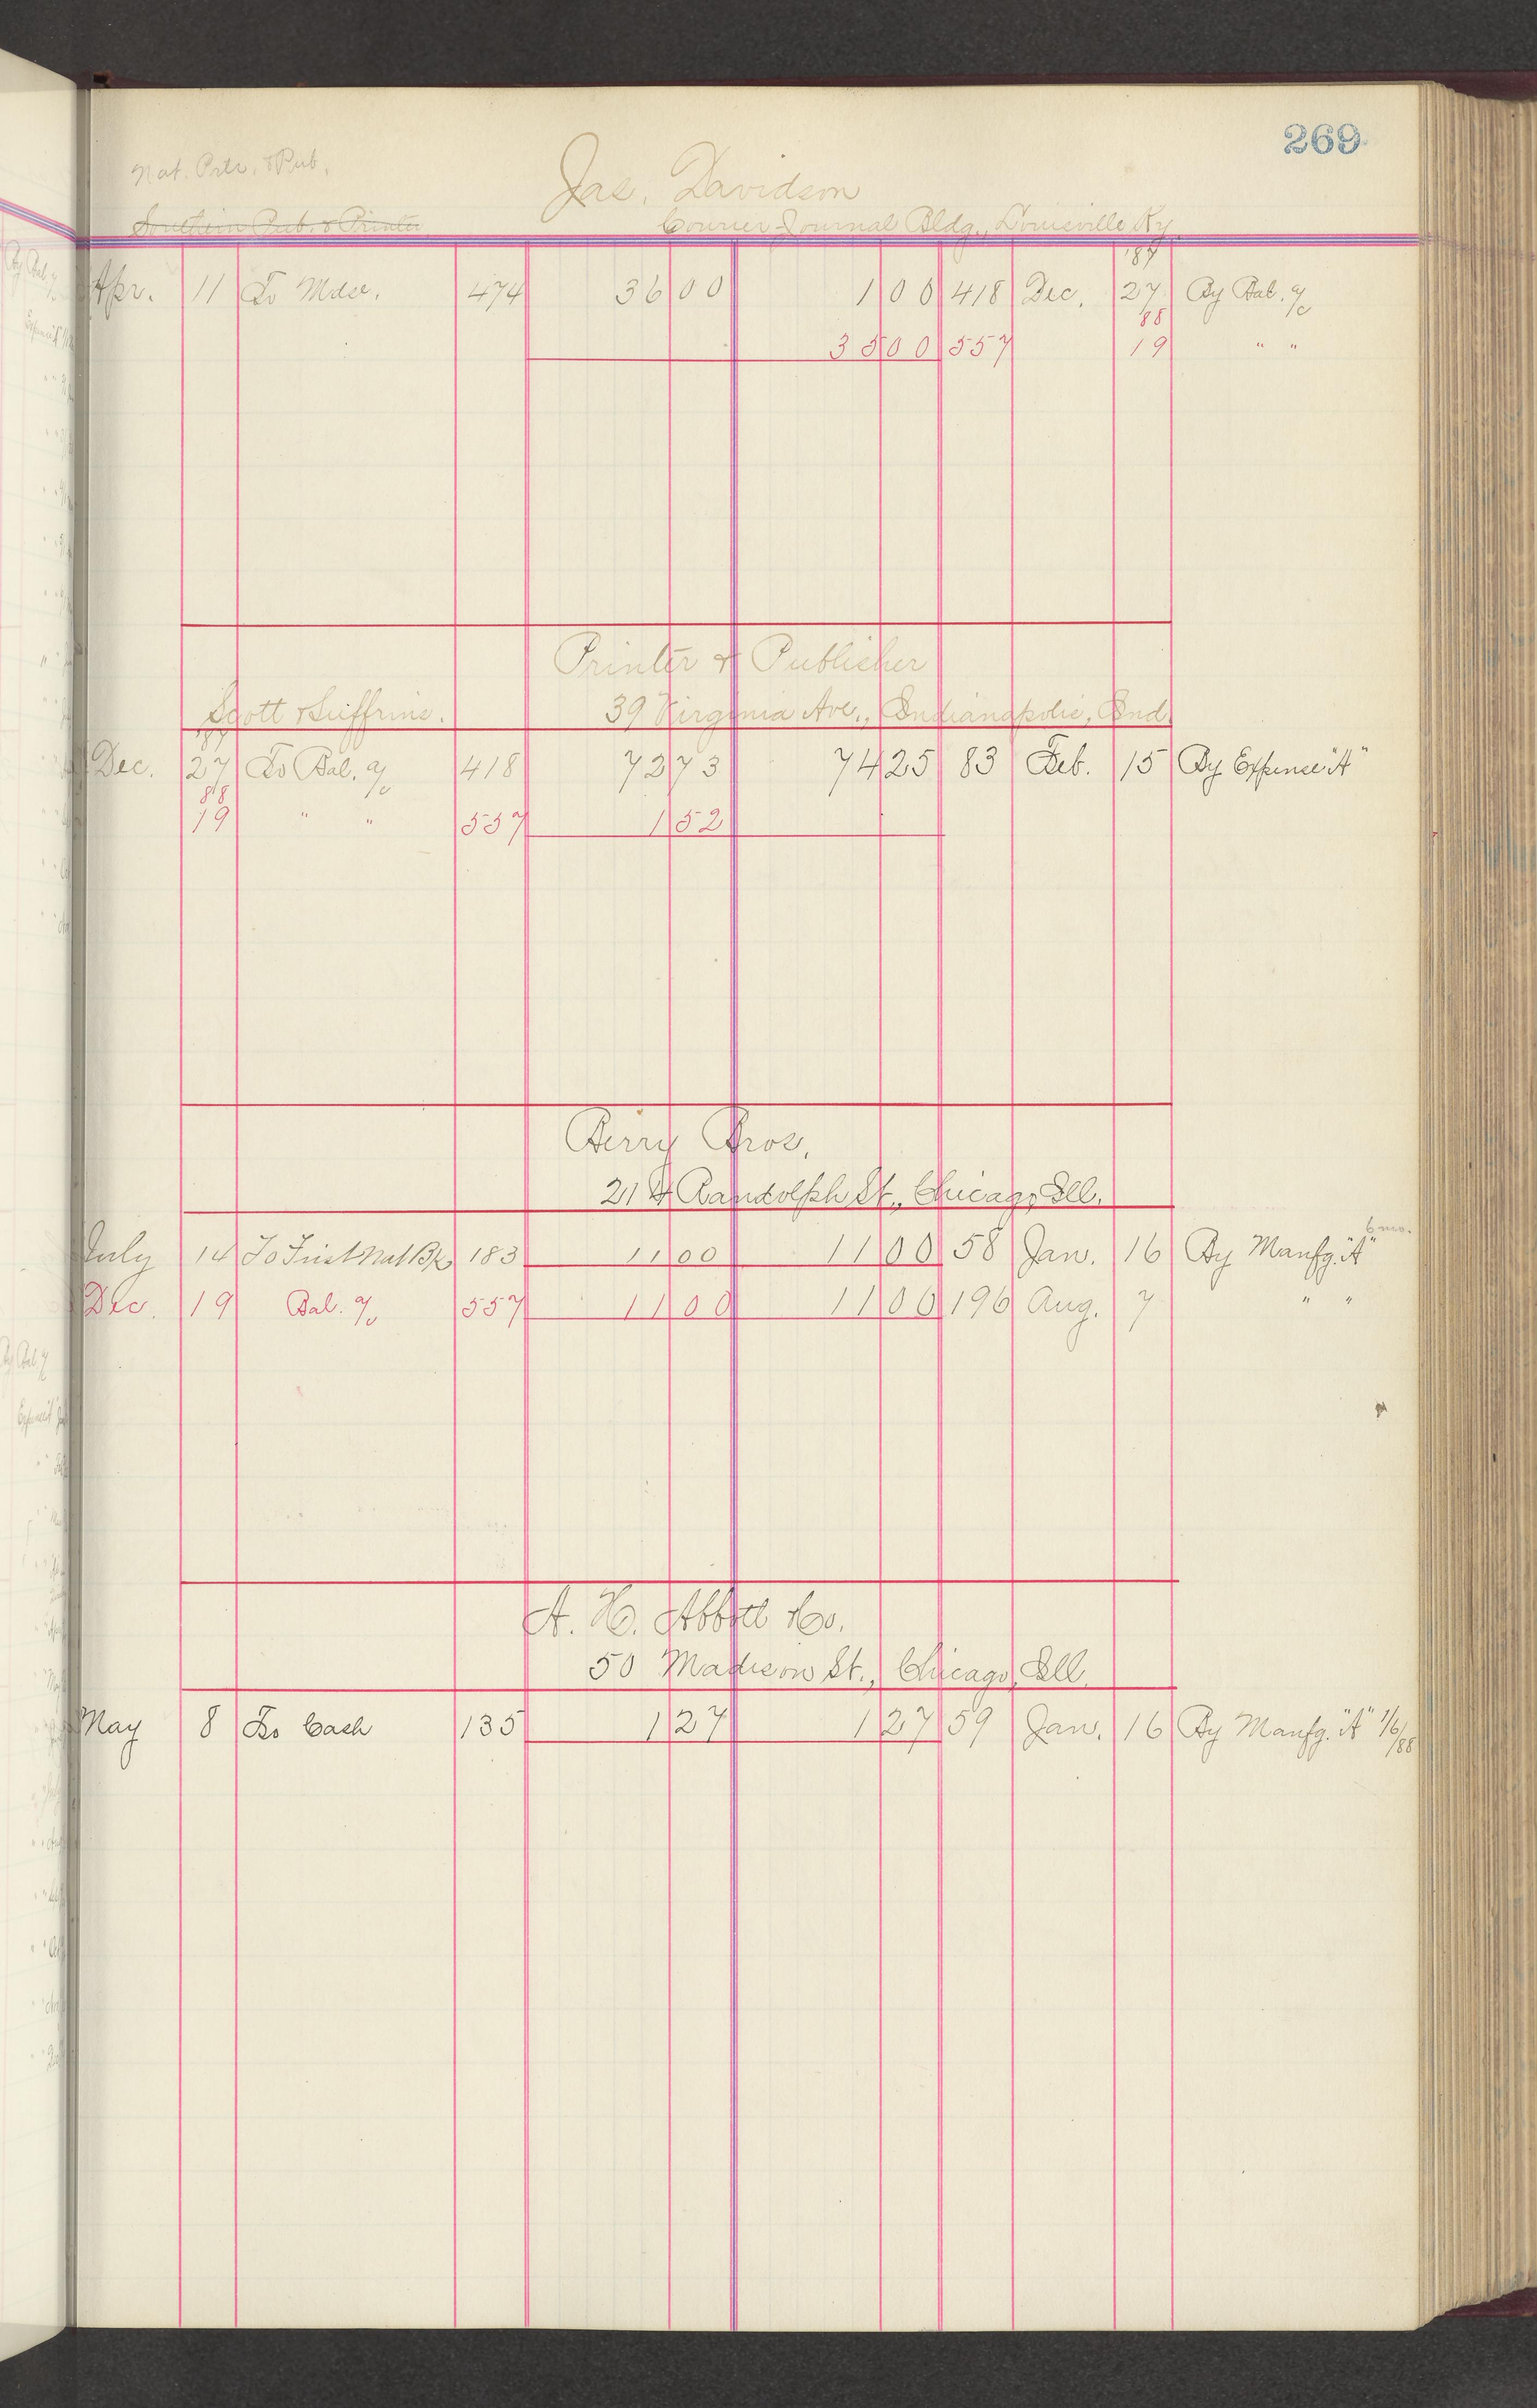 269
Nat. Prtr. & Pub.
Jas. Davidson
Southern Pub. & Printer
Courier-Journal Bldg., Louisville Ky
'87
Apr. 11 To Mdse. 474 36 00 1 00 418 Dec. 27 By Bal. a/c
88
35 00 557 19 " "
Printer & Publisher
Scott & 39 Virginia Ave., Indianapolis, Ind.
'87
Dec. 27 To Bal. a/c 418 72 73 74 25 83 Feb. 15 By Expense "A"
88
19 " " 557 1 52
Berry Bros.
Randolph St., Chicago, Ill.
6 mo.
July 14 To First Nat Bk 183 11 00 11 00 58 Jan. 16 By Manfg. "A"
Dec. 19 Bal. a/c 557 11 00 11 00 196 Aug. 7 " "
A. H. Abbott & Co.
50 Madison St., Chicago, Ill.
May 8 To Cash 135 1 27 1 27 59 Jan. 16 By Manfg. "A" 1/6/88